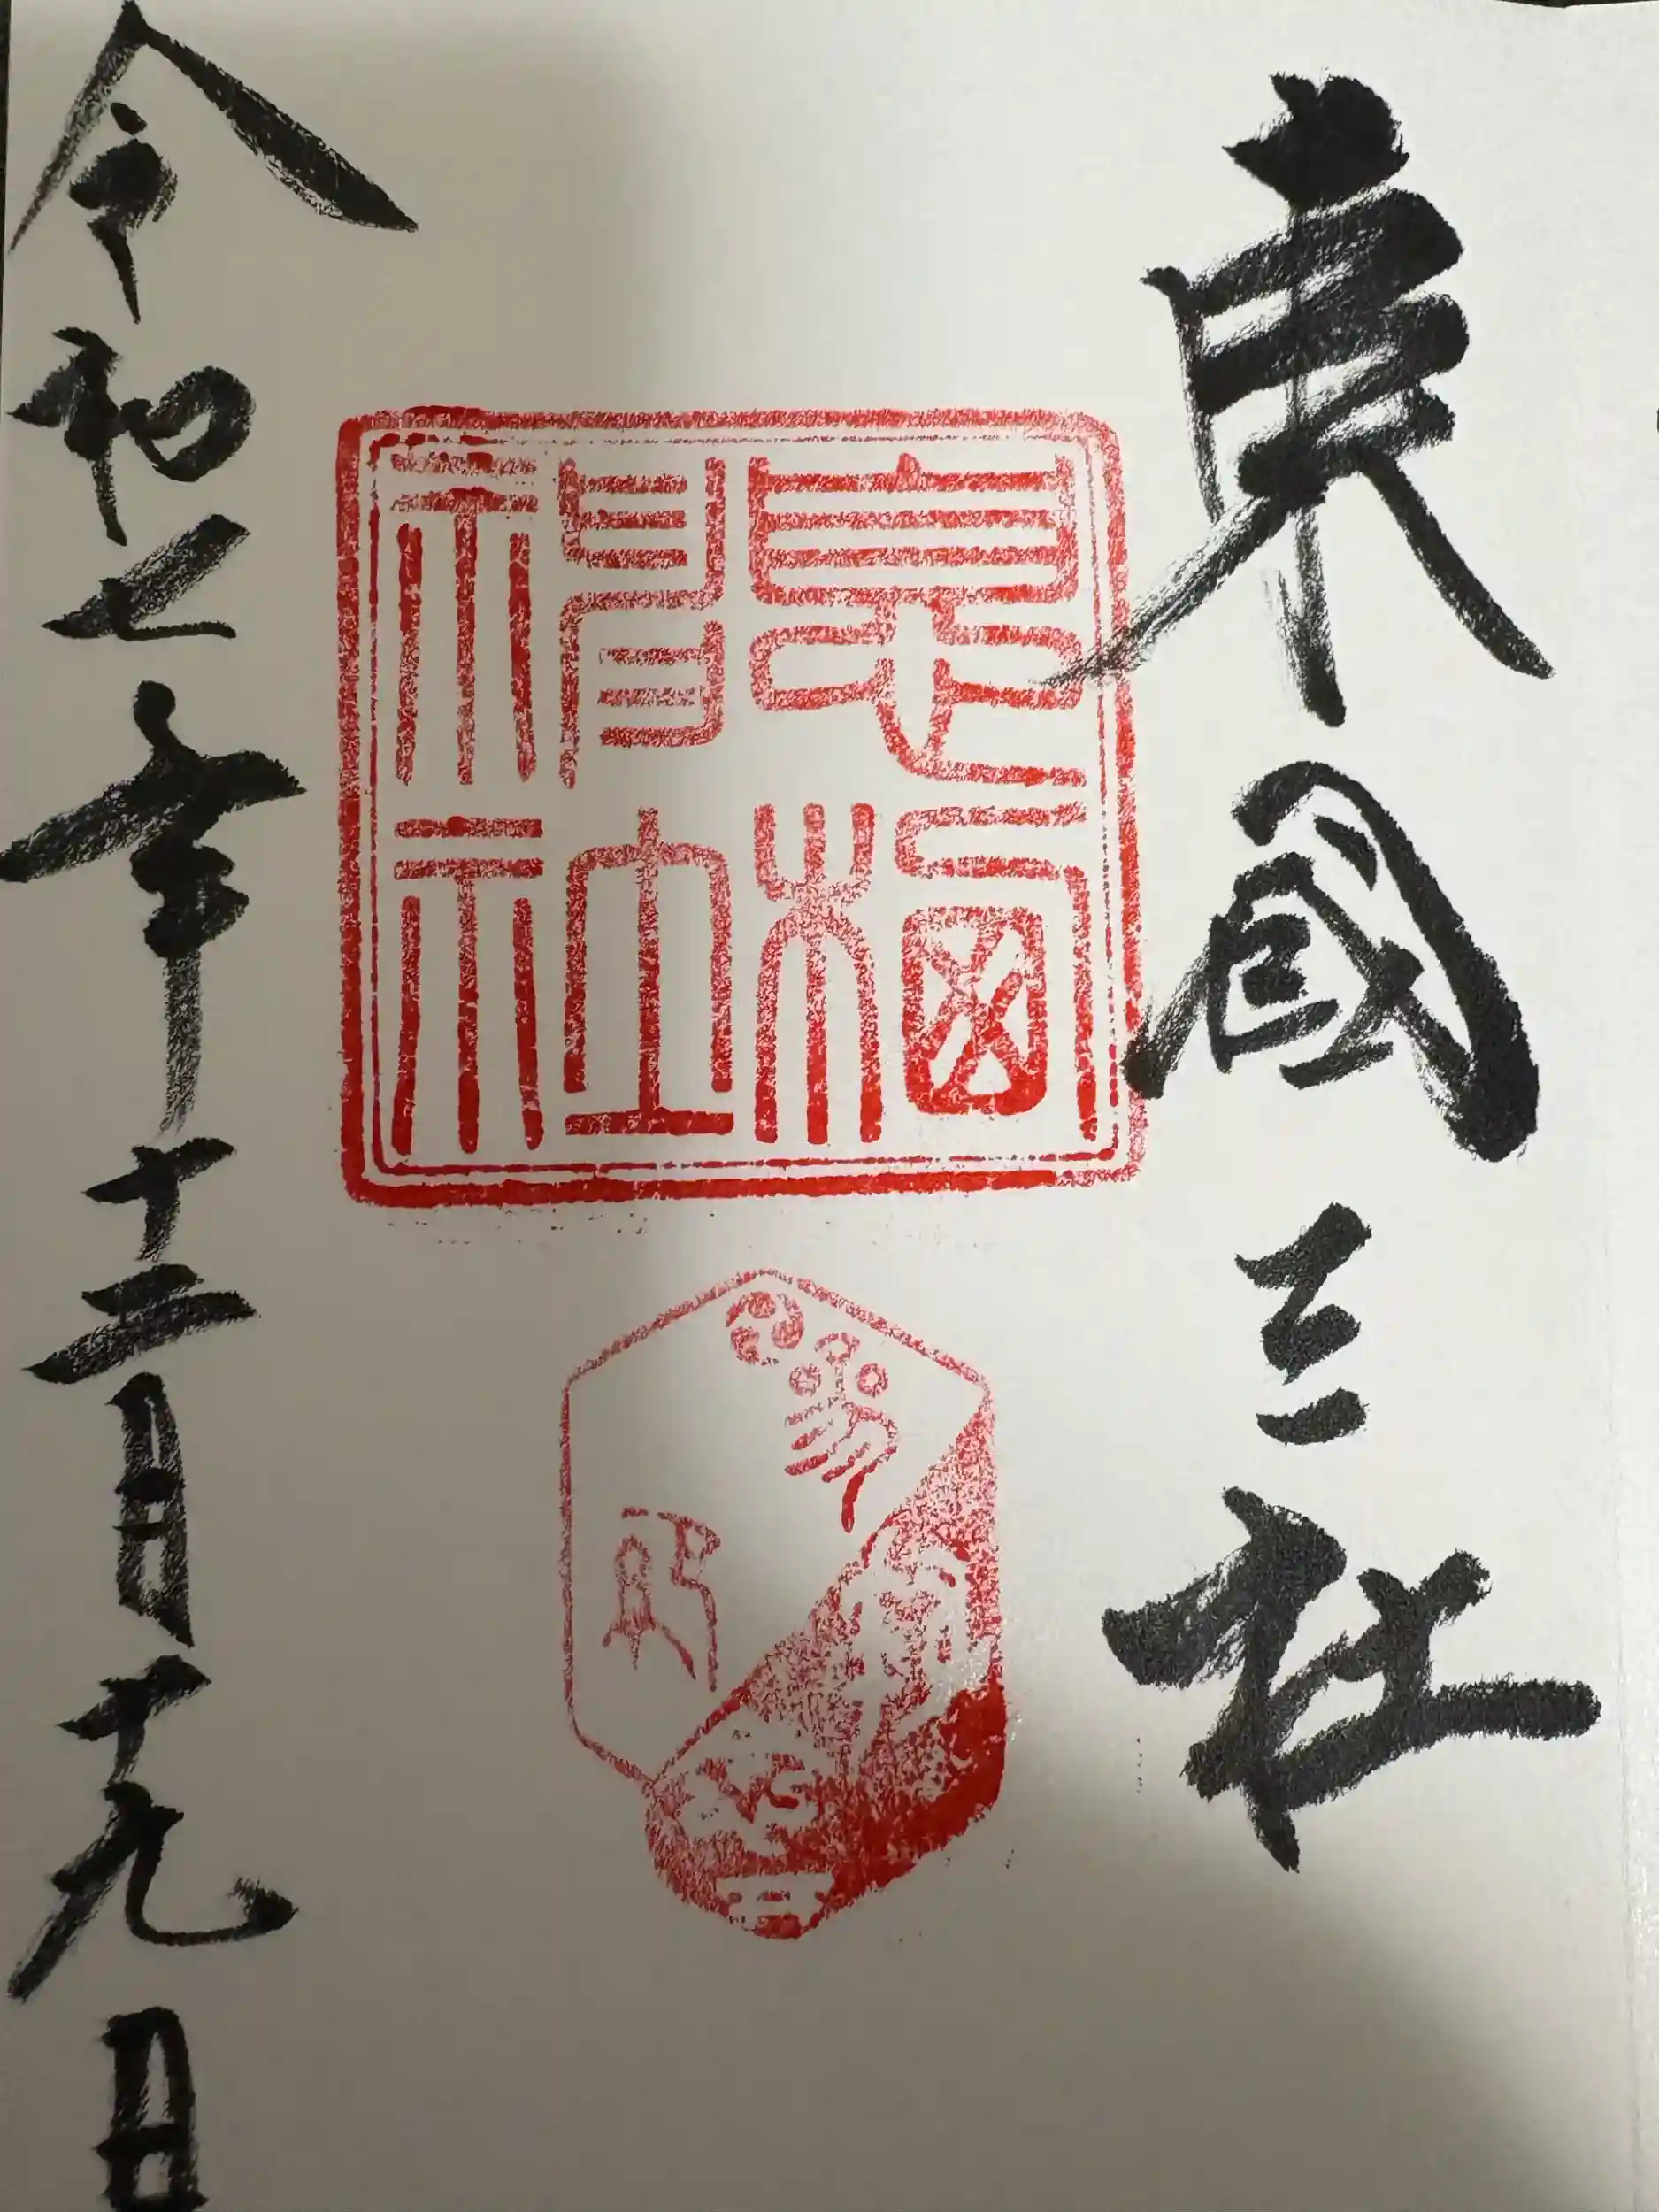 東國三社
息栖神社
令和七年十二月十九日